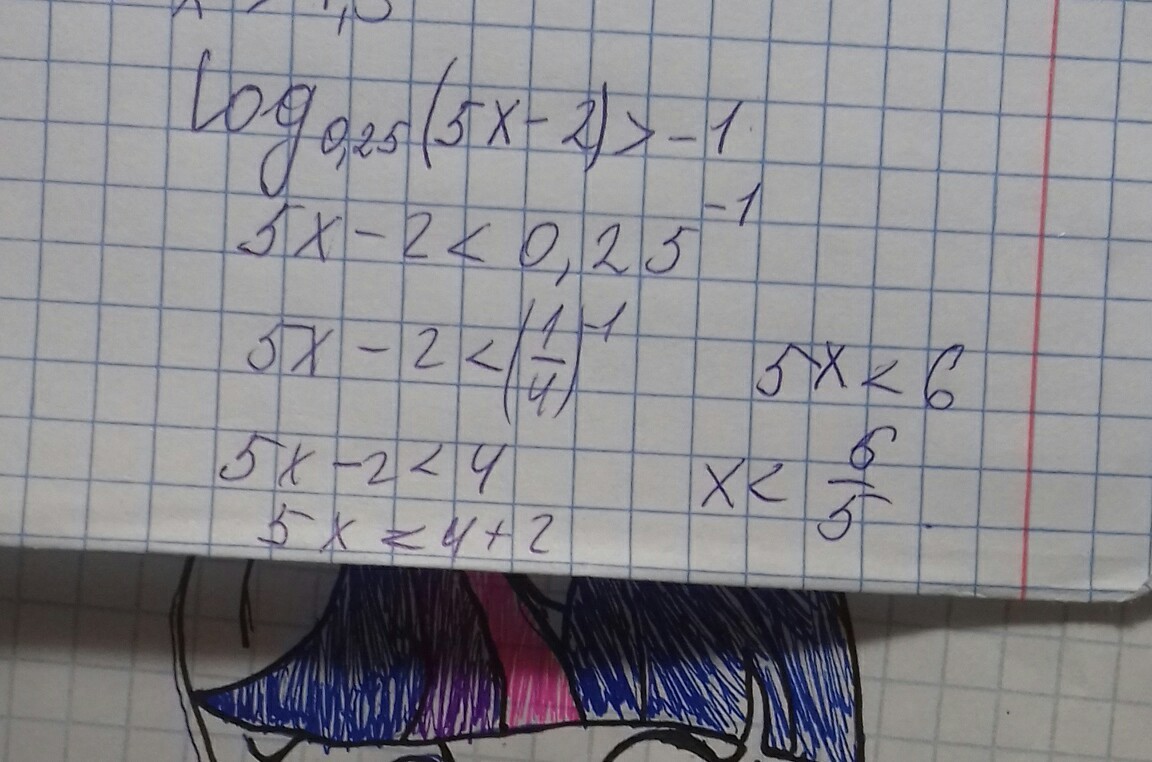 log₀,₂₅(5x-2)>-1
5x-2<0,25⁻¹
5x-2<(1/4)⁻¹
5x-2<4
5x<4+2
5x<6
x<6/5